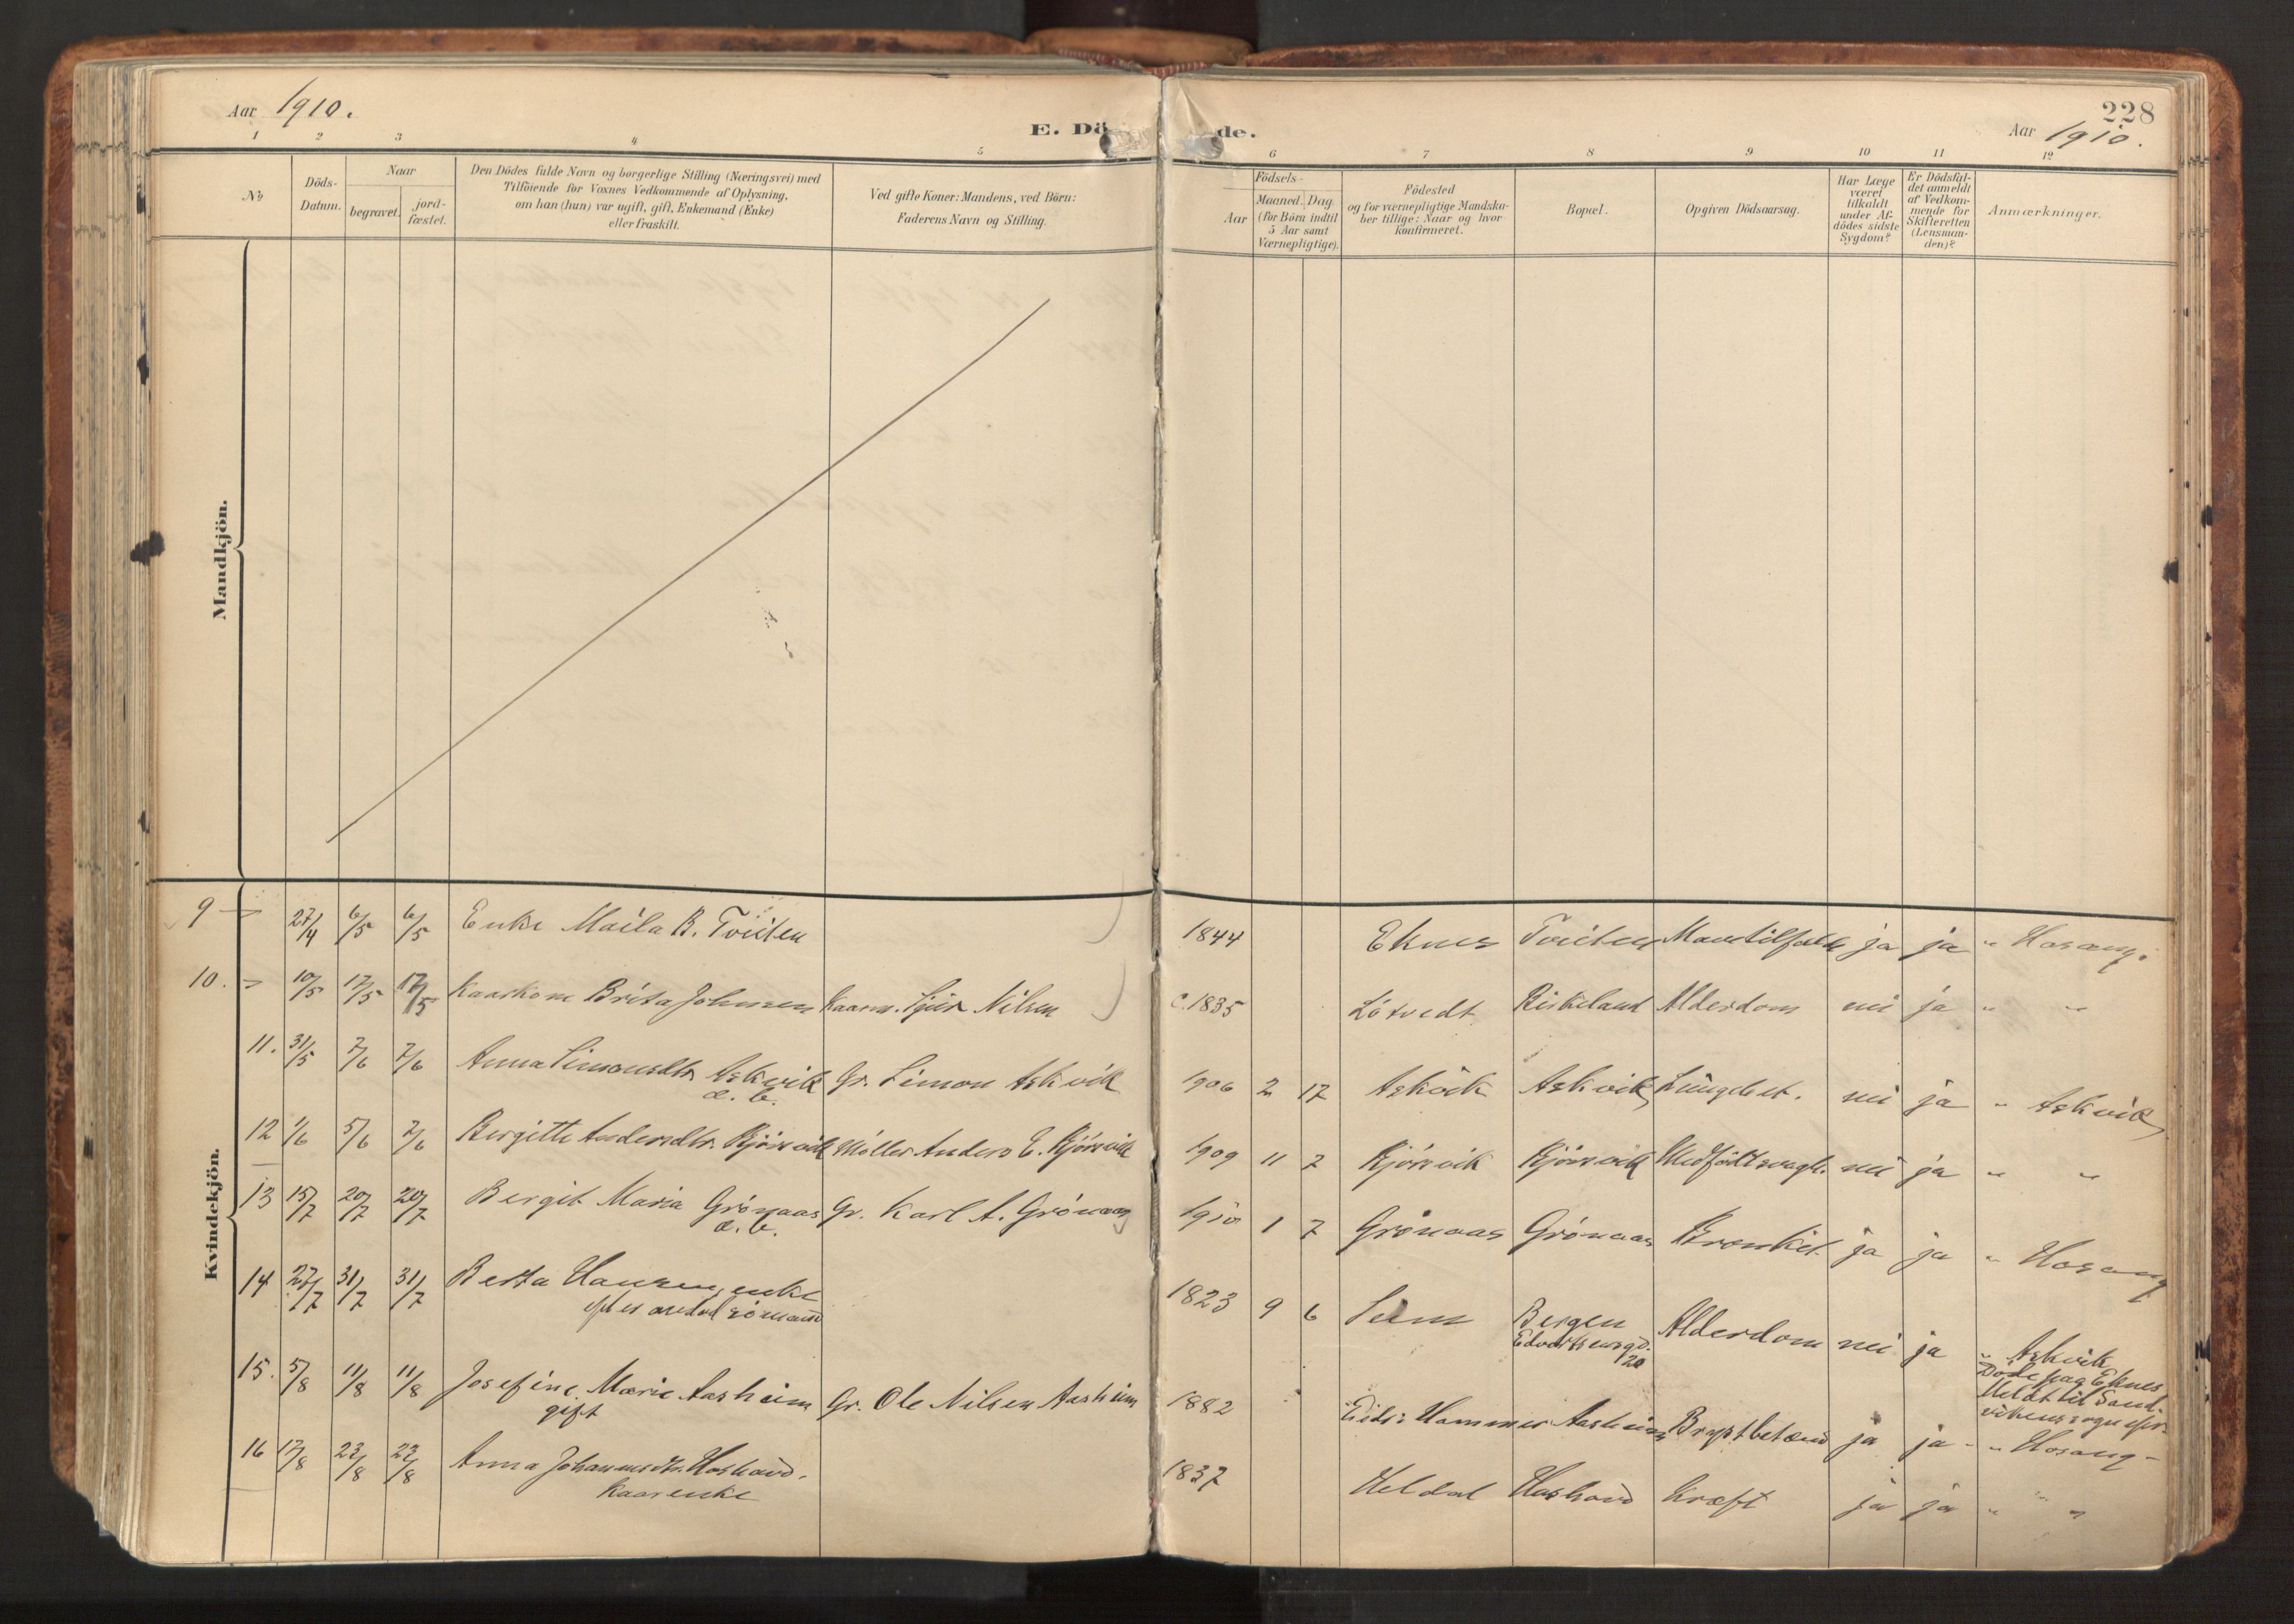 Aar 1910.
E. Dö de.
228
Aar 1910.
1 2 3 4 5 6 7 8 9 10 11 12
No
Döds-
Datum.
Naar
begravet.
jord-
fæstet.
Den Dödes fulde Navn og borgerlige Stilling (Næringsvei) med
Tilföiende for Voxnes Vedkommende af Oplysning,
om han (hun) var ugift, gift, Enkemand (Enke)
eller fraskilt.
Ved gifte Koner: Mandens, ved Börn:
Faderens Navn og Stilling.
Födsels-
Aar
Maaned. Dag.
(for Börn indtil
5 Aar samt
Værnepligtige).
Födested
og for værnepligtige Mandska-
ber tillige: Naar og hvor
konfirmeret.
Bopæl.
Opgiven Dödsaarsag.
Har Læge
været
tilkaldt
under Af-
dödes sidste
Sygdom?
Er Dödsfal-
det anmeldt
af Vedkom-
mende for
Skifteretten
(Lensman-
den)?
Anmærkninger.
Mandkjön.
Kvindekjön.
9 27/4 6/5 6/5 Enke Maila B. Tveiten 1844 Eknes Tveiten ja ja " Hosang.
10. 10/5 17/5 17/5 Kaarkone Brita Johnsen Kaarm. Nilsen c. 1835 Lötvedt Risteland Alderdom nei ja " "
11. 31/5 7/6 7/6 Anna Simonsdtr. Askvik Gr. Simon Askvik 1906 2 17 Askvik Askvik Lungebet. nei ja " Askvik
æ. b.
12 1/6 5/6 7/6 Bergitte Andersdtr. Kjörsvik Möller Anders E. Kjörsvik 1909 11 7 Kjörsvik Kjörsvik Medfödt svagh. nei ja " "
13 15/7 20/7 20/7 Bergit Maria Grönaas Gr. Karl A. Grönaas 1910 1 7 Grönaas Grönaas Bronkit ja ja " Hosang
æ. b.
14 27/7 31/7 31/7 Berta Hansen enke 1823 9 6 Seim Bergen Alderdom nei ja " Askvik
efter
20
Döde paa Eknes
Meldt til Sand-
vikens sognepr.
15. 5/8 11/8 11/8 Josefine Marie Aasheim Gr. Ole Nilsen Aasheim 1882 Eids: Hammer Aasheim Brystbetænd ja ja " Hosang
gift
16 17/8 23/8 23/8 Anna Johannesdtr. Hoshovd. 1837 Heldal Hoshovd Kræft ja ja " "
kaarenke